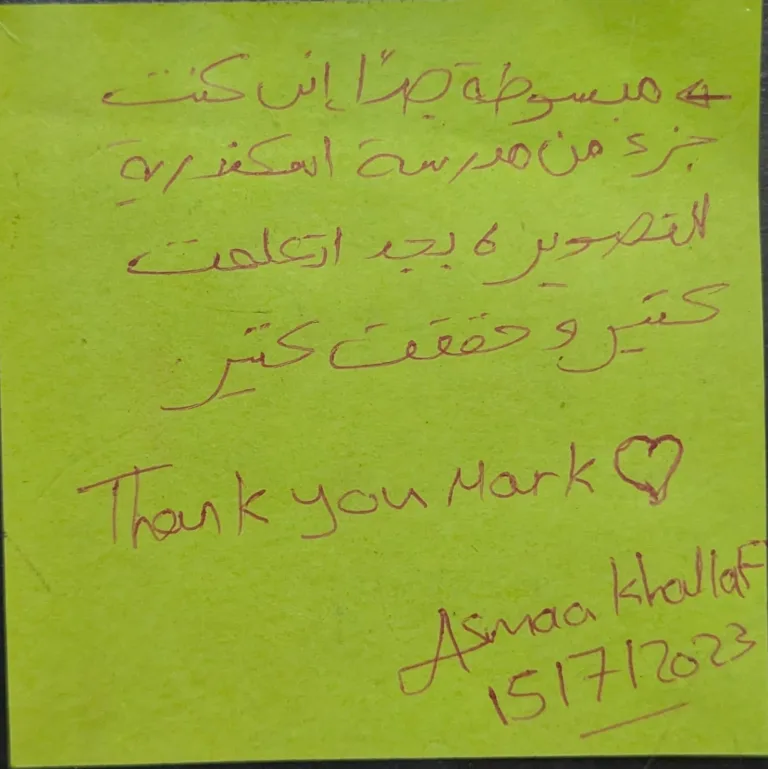 ← مبسوطة جدًا إني كنت
جزء من مدرسة اسكندرية
للتصوير، بجد اتعلمت
كتير وحققت كتير
Thank you Mark ♡
Asmaa Khallaf
15/7/2023